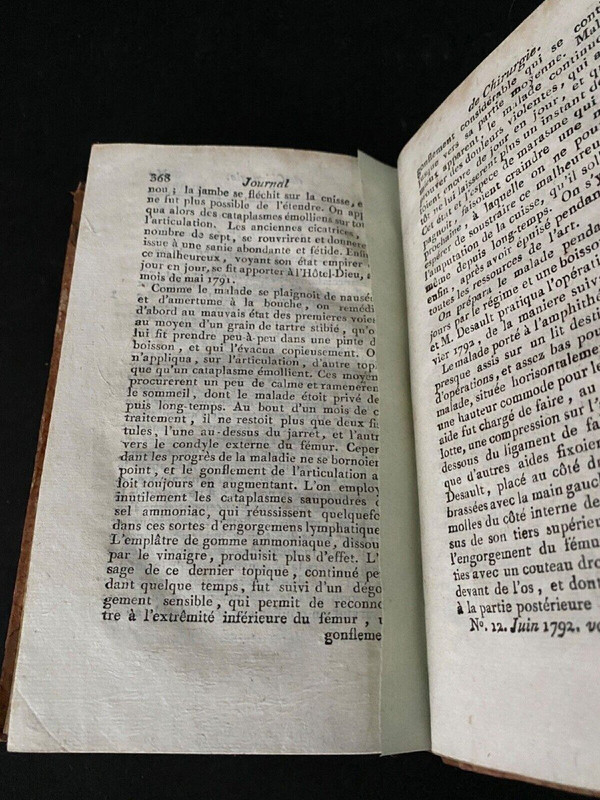 368 Journal
nou ; la jambe se fléchit sur la cuisse, e
ne fut plus possible de l'étendre. On app
qua alors des cataplasmes émolliens sur tou
l'articulation. Les anciennes cicatrices,
nombre de sept, se rouvrirent et donnère
issue à une sanie abondante et fétide. Enfin
ce malheureux, voyant son état empirer
jour en jour, se fit apporter à l'Hôtel-Dieu,
mois de mai 1791.
Comme le malade se plaignoit de nausée
et d'amertume à la bouche, on remédi
d'abord au mauvais état des premières voies
au moyen d'un grain de tartre stibié, qu'o
lui fit prendre peu-à-peu dans une pinte d
boisson, et qui l'évacua copieusement. O
n'appliqua, sur l'articulation, d'autre top
que qu'un cataplasme émollient. Ces moyen
procurerent un peu de calme et ramenèren
le sommeil, dont le malade étoit privé de
puis long-temps. Au bout d'un mois de c
traitement, il ne restoit plus que deux fis
tules, l'une au-dessus du jarret, et l'autr
vers le condyle externe du fémur. Cepen
dant les progrès de la maladie ne se bornoient
point, et le gonflement de l'articulation a
loit toujours en augmentant. L'on employ
inutilement les cataplasmes saupoudrés d
sel ammoniac, qui réussissent quelquefo
dans ces sortes d'engorgemens lymphatique
L'emplâtre de gomme ammoniaque, dissou
par le vinaigre, produisit plus d'effet. L'
sage de ce dernier topique, continué pe
dant quelque temps, fut suivi d'un dégo
gement sensible, qui permit de reconno
tre à l'extrêmité inférieure du fémur,
gonfleme
de Chirurgie.
gonflement considérable qui se cont
vers sa partie moyenne. Mal
apparent, le malade continuo
douleurs violentes, qui
de jour en jour, et qu
laissèrent plus un instant de
Cet état et l'espece de marasme qui
faisoient craindre une
prochaine, à laquelle on ne pou
espérer de soustraire ce malheureux
l'amputation de la cuisse, qu'il sol
même depuis long-temps. On s'y
enfin, après avoir épuisé pendant
toutes les ressources de l'art.
On prépara le malade penda
jours par le régime et une boisson
et M. Desault pratiqua l'opérati
vier 1792, de la maniere suiv
Le malade porté à l'amphithé
presque assis sur un lit destin
d'opérations, et assez bas pou
malade, située horisontaleme
une hauteur commode pour le
aide fut chargé de faire, au
lotte, une compression sur l'
dessous du ligament de fa
que d'autres aides fixoien
Desault, placé au côté du
brassées avec la main gauch
molles du côté interne de
sus de son tiers supérieur
l'engorgement du fému
ties avec un couteau dro
devant de l'os, et dont
à la partie postérieure
No. 12. Juin 1792. vo